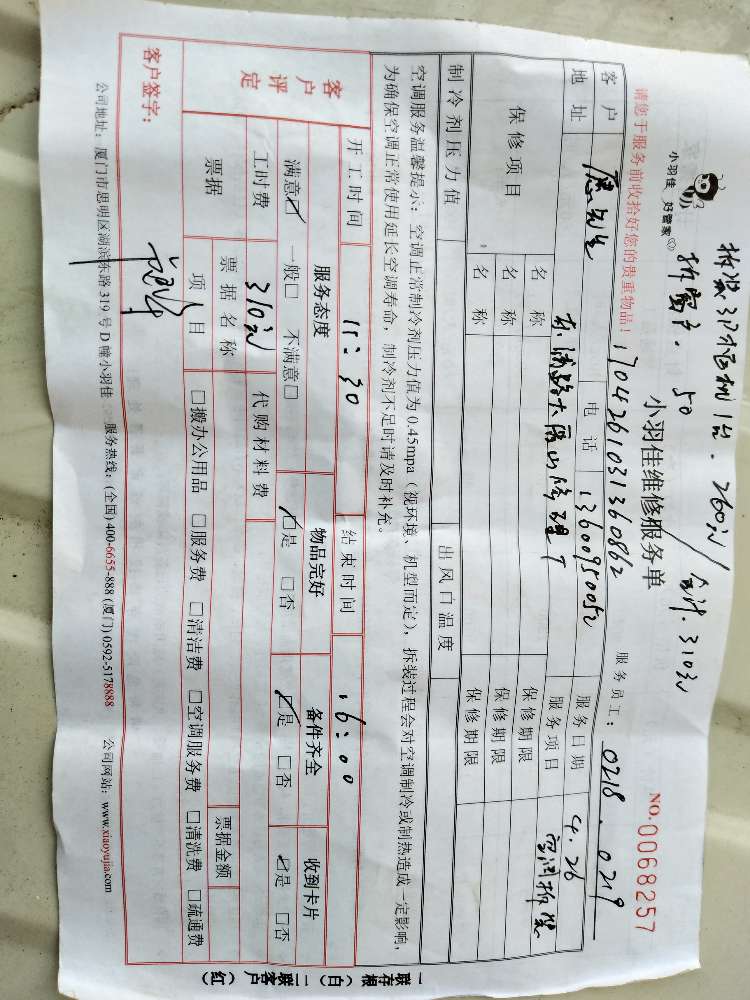 拆装3P柜机1台.260元
拆窗户.50
合计.310元
小羽佳 好管家
小羽佳维修服务单
NO.0068257
请您于服务前收拾好您的贵重物品!
1704261031360862
服务员工: 0218.0219
客户 先生 电话 13600950052 服务日期 4.26
地址 服务项目 空调拆装
保修项目 名称 保修期限
名称 保修期限
名称 保修期限
制冷剂压力值 出风口温度
空调服务温馨提示: 空调正常制冷剂压力值为0.45mpa (视环境、机型而定), 拆装过程会对空调制冷或制热造成一定影响,
为确保空调正常使用延长空调寿命, 制冷剂不足时请及时补充。
开工时间 11:30 结束时间 16:00
客户评定
服务态度 物品完好 备件齐全 收到卡片
满意☑ 一般□ 不满意□ ☑是 □否 ☑是 □否 ☑是 □否
工时费 310元 代购材料费
票据 票据名称 票据金额
项目 □搬办公用品 □服务费 □清洁费 □空调服务费 □清洗费 □疏通费
客户签字:
公司地址: 厦门市思明区湖滨东路319号D幢小羽佳 服务热线: (全国) 400-6655-888 (厦门) 0592-5178888 公司网站: www.xiaoyujia.com
一联存根 (白) 二联客户 (红)